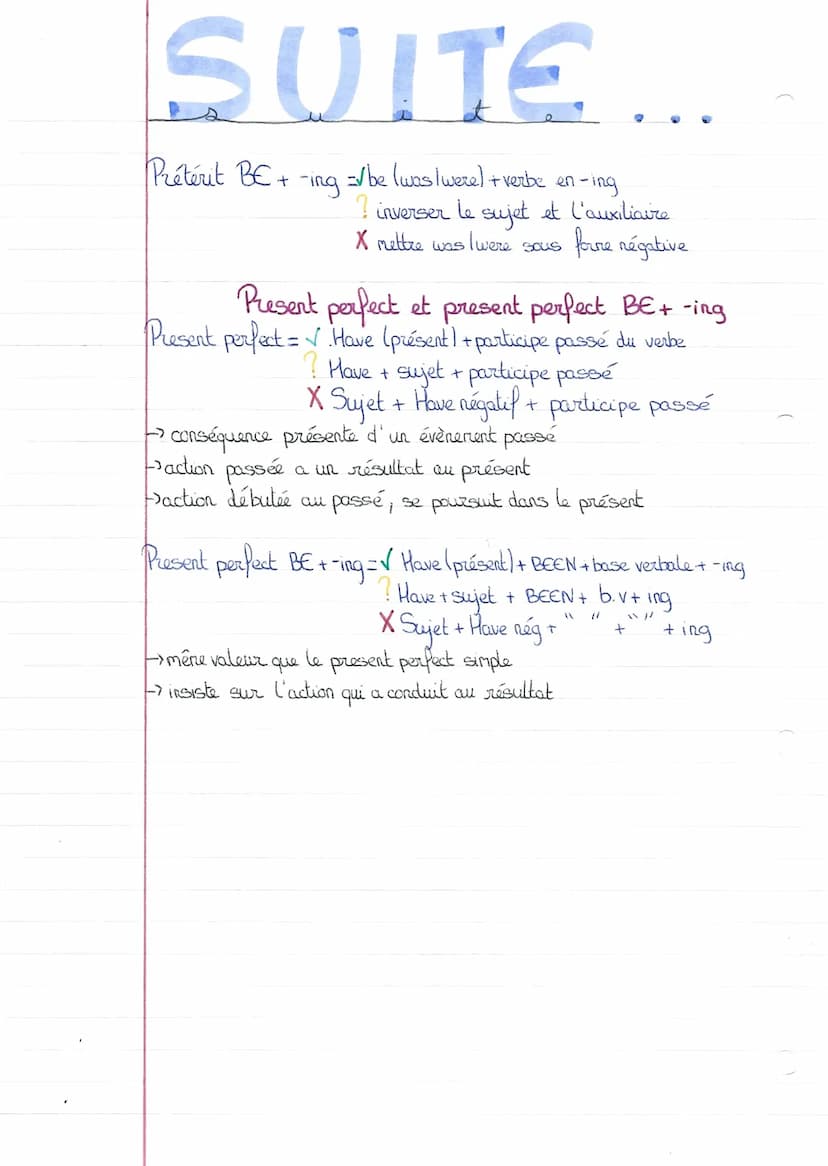 SUITE...
suite
Prétérit BE + -ing = ✓ be (was/were) + verbe en -ing
? inverser le sujet et l'auxiliaire
X mettre was/were sous forme négative
Present perfect et present perfect BE + -ing
Present perfect = ✓ Have (présent) + participe passé du verbe
? Have + sujet + participe passé
X Sujet + Have négatif + participe passé
→ conséquence présente d'un évènement passé
→ action passée a un résultat au présent
→ action débutée au passé, se poursuit dans le présent
Present perfect BE + -ing = ✓ Have (présent) + BEEN + base verbale + -ing
? Have + sujet + BEEN + b.v + ing
X Sujet + Have nég + " " + " " + ing
→ même valeur que le present perfect simple
→ insiste sur l'action qui a conduit au résultat